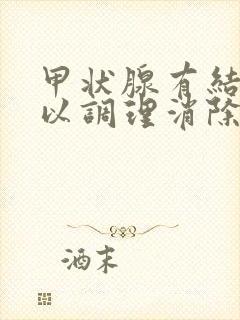 甲状腺有結
以調理消除
酒末